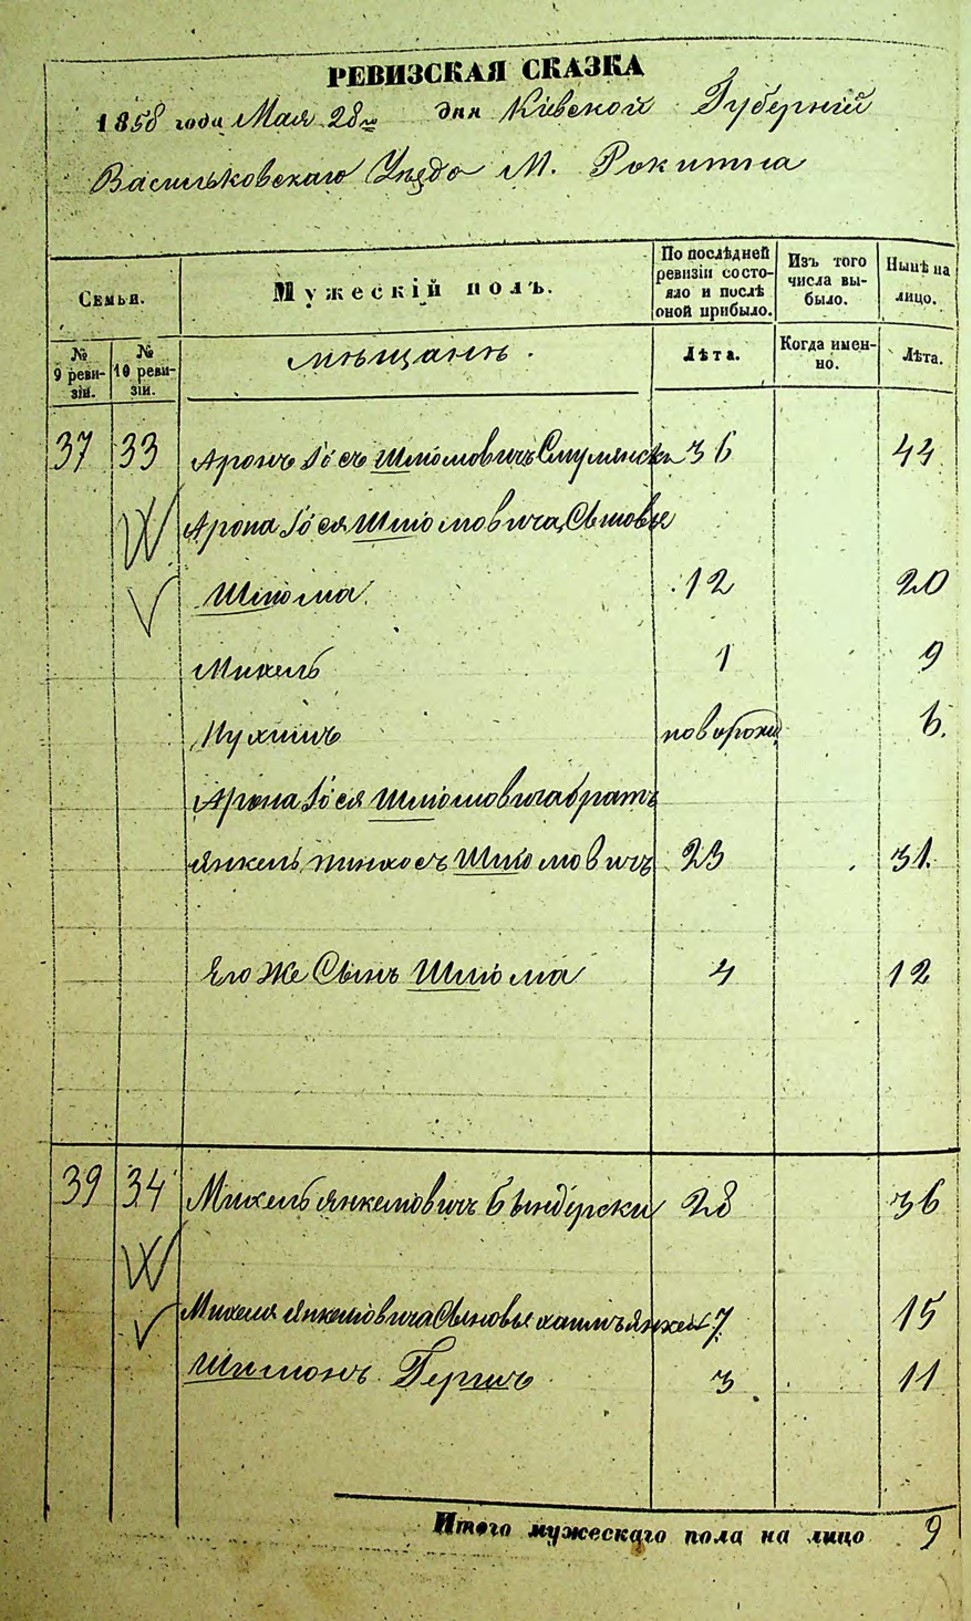 РЕВИЗСКАЯ СКАЗКА
1858 года Мая 28го дня Кіевской Губерніи
Васильковскаго Уезда М. Рокитна
Семьи.
Мужескій полъ.
По послѣдней ревизіи состояло и послѣ оной прибыло.
Изъ того числа выбыло.
Нынѣ на лицо.
№ 9 ревизіи.
№ 10 ревизіи.
мѣщане.
Лѣта.
Когда именно.
Лѣта.
37 33 Аронъ Іось Шліомовичъ 36 44
Арона Іося Шліомовича Сыновья
Шліома 12 20
Михель 1 9
Нухимъ новорожд 6.
Арона Іося Шліомовича братъ
Янкель Пинхосъ Шліомовичъ 23 31.
Его же Сынъ Шліома 4 12
39 34 Михель Янкелевичъ Бѣндерски 28 36
Михеля Янкелевича Сыновья Хаимъ Янкель 7 15
Шимонъ Гершъ 3 11
Итого мужескаго пола на лицо 9